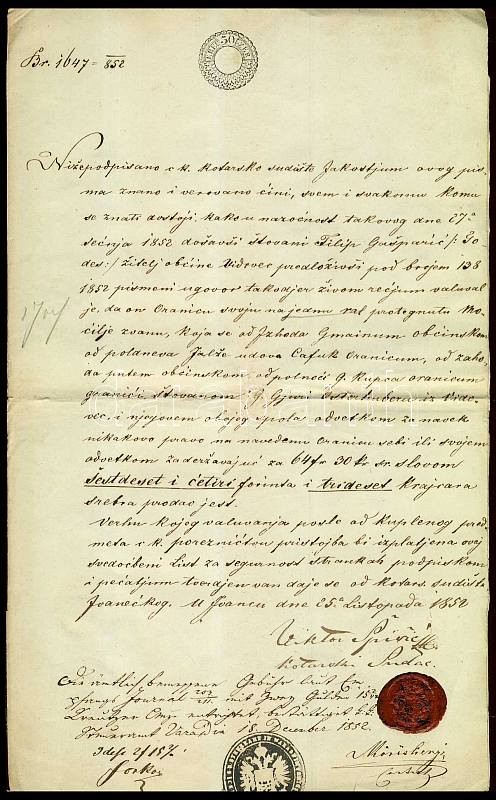 Br. 1647 = 852
30
Nižepodpisano c k. kotarsko sudište Jakostjum ovog pis-
ma znano i verovano čini, svem i svakomu komu
se znati dostoji, kako u nazočnost takovog dne 27a
sečnja 1852 došavši štovani Filip Gašparić /: Go-
des :/ žitelj občine Vidovec predloživši pod brojem 138
1852 pismeni ugovor takodjer živom rečjum valuval
je, da on Oranicu svoju na jednu
zvanu, koja se od Izhoda Gmainum občinskom
od poldneva Jalže udova Cafuk Oranicum, od zaho-
da putem občinskom, od polnoći G. Kupca oranicum
graniči štovanom G. Gjuri Osterhuberu iz Vido-
vec i njegovem obojeg spola odvetkom za navek
nikakovo pravo na navedenu oranicu sebi ili svojem
odvetkom zaderžavajuć za 64 fr 30 kr. sr. slovom
šestdeset i četiri forinta i trideset krajcara
srebra prodao jest.
Verhu kojeg valuvanja posle od kuplenog pred-
meta c k. porezničtvu pristojba bi izplatjena ovaj
svedočbeni list za segurnost strankah podpiskom
i pečatjum tverdjen van daje se od kotars. sudišta
Ivanečkog. U Ivancu dne 25a Listopada 1852
Viktor
kotarski Sudac.
Gebühr laut
Journal mit zwey Gulden
18 December 1852.